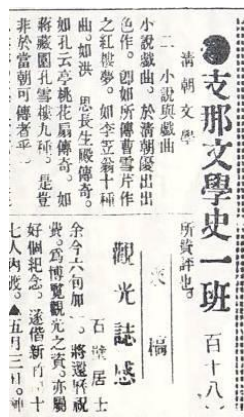 ●支那文學史一班 百十八
清朝文學
二 小說與戲曲
小說戲曲。於清朝優出出
色作。即如所傳曹雪片作
之紅樓夢。如李笠翁十種
曲。如洪 思長生殿傳奇。
如孔云亭桃花扇傳奇。如
蔣藏園孔雪樓九種。是豈
非於當朝可傳者乎
所賞評也。
來稿
觀光誌感
石壁居士
余今六旬加 。將還曆祝
費。爲博覽觀光之資。亦屬
好個紀念。遂偕新竹 十
七人內渡。▲五月三日。神